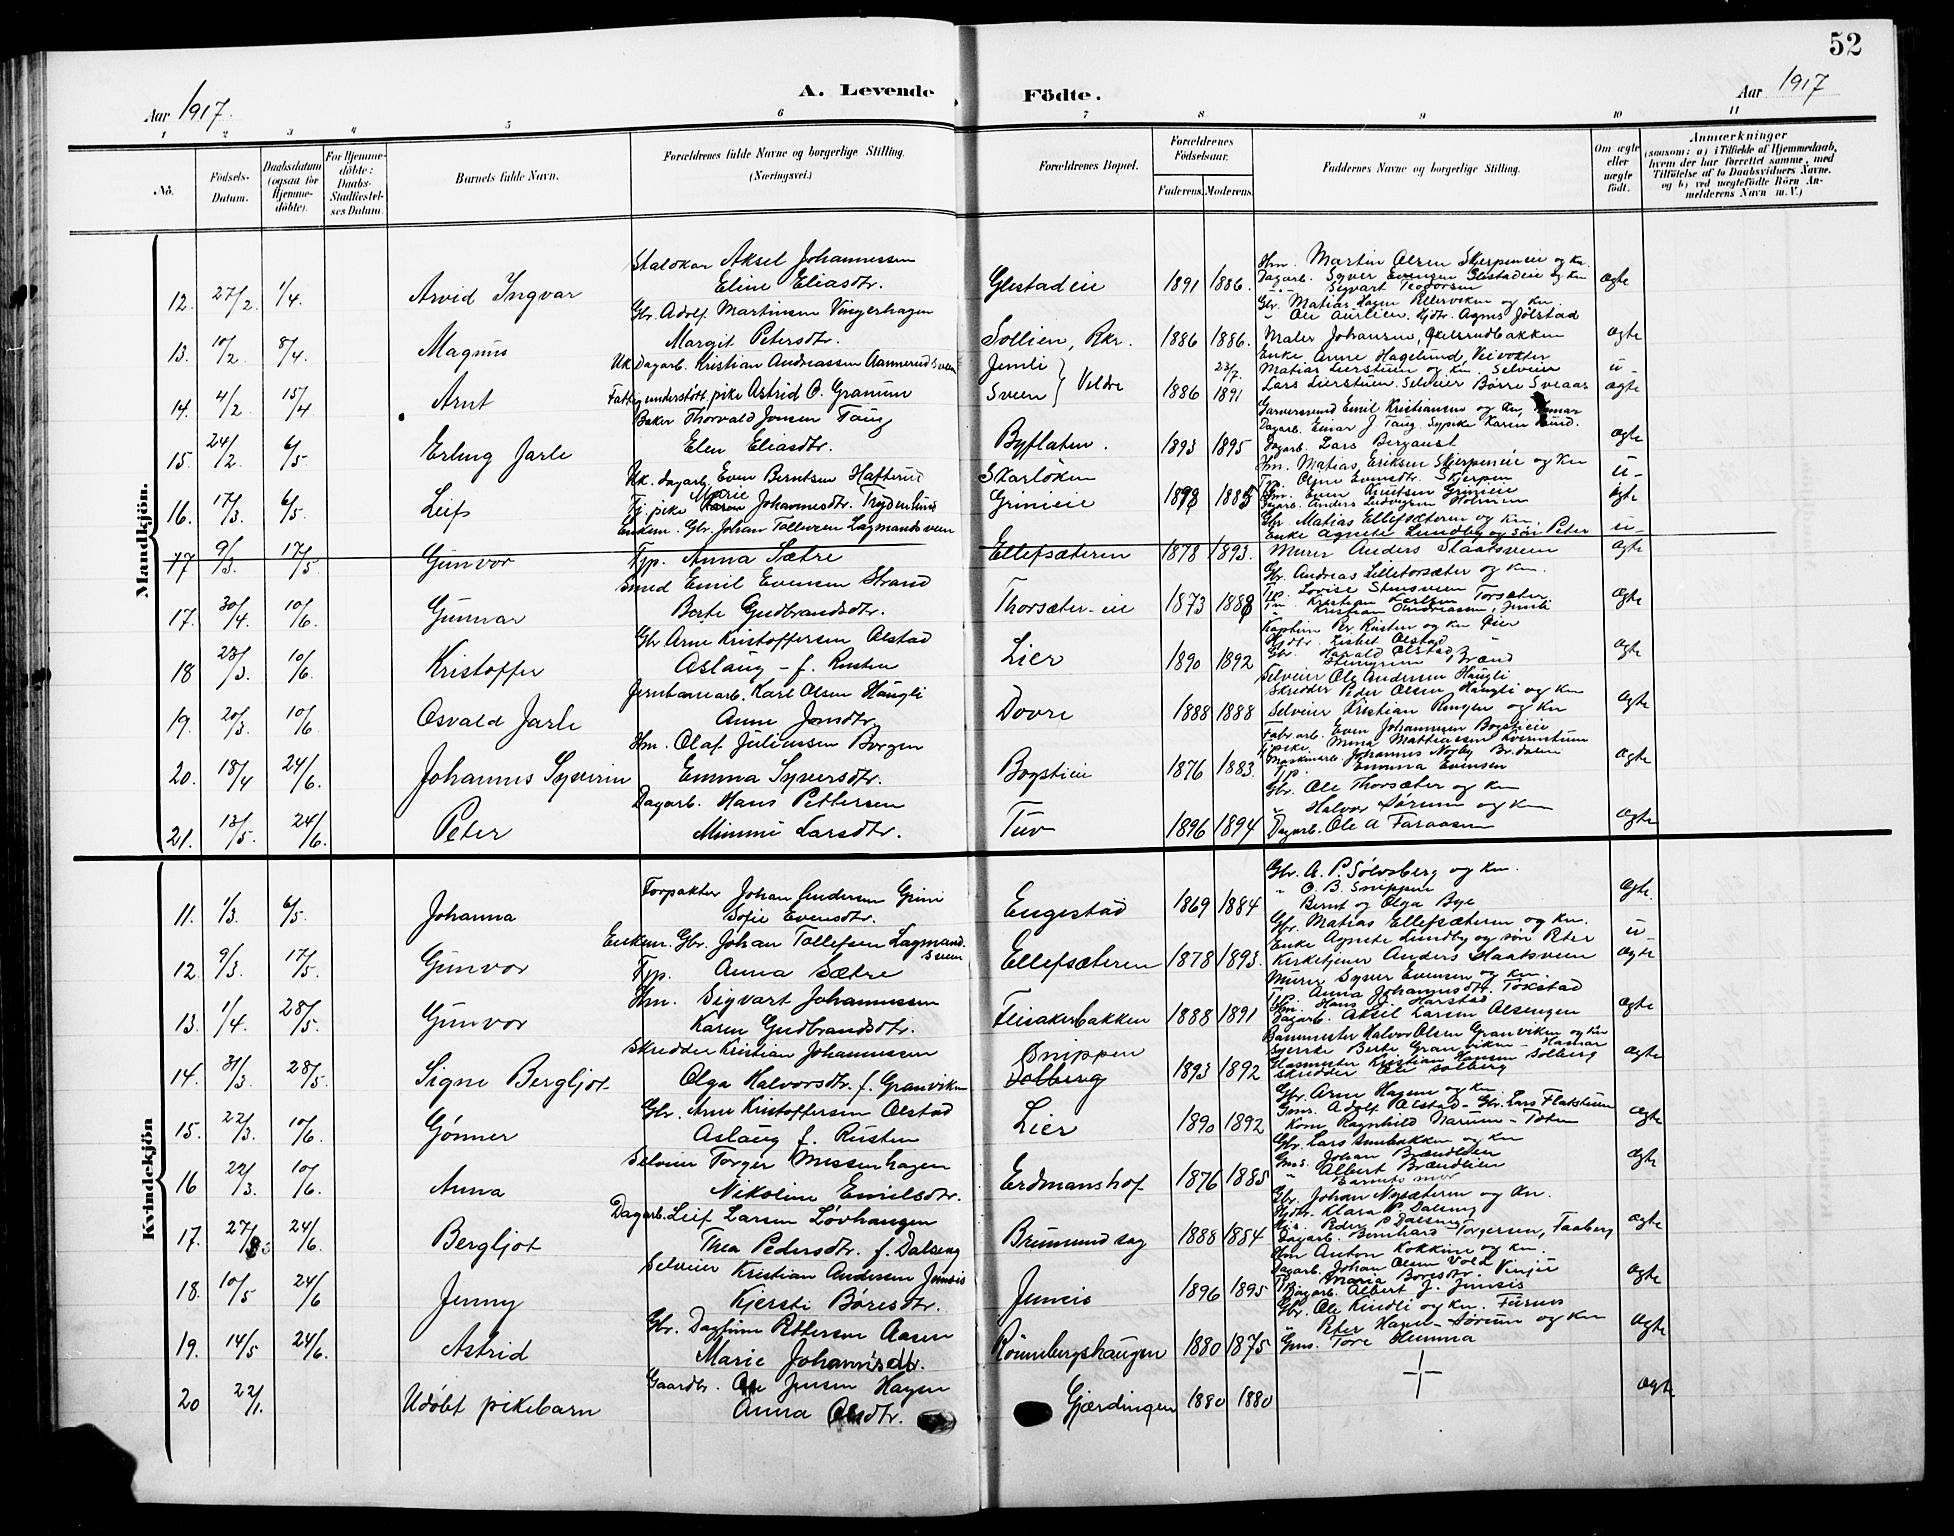 52
Aar 1917.
A. Levende Födte.
Aar 1917
1 2 3 4 5 6 7 8 9 10 11
No.
Födsels-Datum.
Daabsdatum (ogsaa for Hjemme-döbte).
For Hjemme-döbte: Daabs-Stadfæstel-ses Datum.
Barnets fulde Navn.
Forældrenes fulde Navne og borgerlige Stilling. (Næringsvei.)
Forældrenes Bopæl.
Forældrenes Födselsaar.
Faderens. Moderens.
Faddernes Navne og borgerlige Stilling.
Om ægte eller uægte födt.
Anmærkninger (saasom: a) i Tilfælde af Hjemmedaab, hvem der har forrettet samme, med Tilföielse af to Daabsvidners Navne, og b) ved uægtefödte Börn An-melderens Navn m. V.)
Mandkjön.
12. 27/2. 1/4. Arvid Ingvar
Aksel Johannessen
Eline Eliasdtr.
Glestadeie 1891 1886.
Hm. Martin Olsen Skjerpeneie og kn.
Dagarb. Syver Evensen Glestadeie og kn
Sigvart Teodorsen
ægte
13. 10/2 8/4. Magnus
Gbr. Adolf Martinsen Vingerhagen
Margit Petersdtr.
Sollien, Rkr. 1886 1886.
Gbr. Matias Hagen Pellerviken og kn.
ægte
14. 4/2 15/4 Arnt
Uk. Dagarb. Kristian Andreassen Aannerud Sveen
Fattigunderstøtt. pike Astrid O. Granum
Jemli
Sveen } Veldre 1886 23/7. 1891
Enke Anne Hagelund,
Matias Lierstuen og kn. Selveier
Lars Lierstuen. Selveier Børre Sveaas
u-ægte
15. 24/2 6/5 Erling Jarle
Baker Thorvald Jensen Taug
Elen Eliasdtr.
Byflaten. 1893 1895
Garversvend Emil Kristiansen og kn, Hamar
Dagarb. Einar J Taug. Sypike Karen Lund.
Dagarb. Lars Bergaust
ægte
16. 17/3 6/5. Leif
Uk. dagarb. Even Berntsen Hafterud
Tj. pike Marie Johannesdtr. Frydenlund
Skarløken
Grinieie
Hm. Matias Eriksen Skjerpeneie og kn
Tp. Oline Evensdtr. Skjerpen
Hm. Even Knutsen Grinieie
Dagarb. Anders Ludvigsen Holmen
u-ægte
17 9/3. 17/5 Gunvor
Enkem. Gbr. Johan Tollefsen Lagmandsveen
Tjp. Anna Sætre
Ellefsæteren 1878 1893.
Gbr. Matias Ellefsæteren og kn.
Enke Agnete Lundby og søn Peter
Murer Anders Staatsveen
u-ægte
17. 30/4. 10/6. Gunnar
Smed Emil Evensen Strand
Berte Gudbrandsdtr.
Thorsæter-eie 1873 1888
Gbr. Andreas Lilletorsæter og kn.
Tp. Lovise Stensveen
Kristian Karlsen Torsæter.
Kristian Andreassen, Jemli
ægte
18 28/3. 10/6. Kristoffer
Gbr Arne Kristoffersen Alstad
Aslaug - f. Rusten
Lier 1890 1892
Kaptein Per Rusten og kn Øier
Hjdtr. Lisbet Alstad
Gbr. Harald Alstad,
ægte
19. 20/3. 10/6. Osvald Jarle
Jernbanearb. Karl Olsen Haugli
Anne Jonsdtr.
Dovre 1888 1888
Selveier Ole Andersen Haugli
Skredder Peder Olsen Haugli og kn
Selveier Kristian Ringen og kn
ægte
20. 18/4 24/6. Johannes Syverin
Hm. Olaf Juliussen Borgen
Emma Syversdtr.
Bogstieie 1876 1883.
Fabr. arb. Even Johannesen Bogstieie
Tj.pike. Mina Mattiassen Kvernstuen
Maskinarb. Johannes Norby Br.dalen
Tp. Emma Evensen
ægte
21. 13/5. 24/6. Peter
Dagarb. Hans Pettersen
Mimmi Larsdtr.
Tuv 1896 1894
Gbr. Ole Thorsæter og kn
Halvor Sørum og kn
Dagarb. Ole A Faraasen
ægte
Kvindekjön
11. 1/3. 6/5. Johanna
Forpakter Johan Andersen Grini
Sofie Evensdtr.
Engestad 1869 1884
Gbr. A. P. Sølvsberg og kn.
" O. B. Snippen
Bernt og Olga Bye
ægte.
12. 9/3. 17/5. Gunvor
Enkem. Gbr. Johan Tollefsen Lagmandsveen
Tjp. Anna Sætre
Ellefsæteren 1878 1893.
Gbr. Matias Ellefsæteren og kn.
Enke Agnete Lundby og søn Peter
Kirketjener Anders Staatsveen
u-ægte
13. 1/4. 28/5. Gunvor
Hm. Sigvart Johannessen
Karen Gudbrandsdtr.
Flisakerbakken 1888 1891
Murer Syver Evensen og kn.
Tjp. Anna Johannesdtr. Tokstad
Hm. Hans J. Harstad
Dagarb. Aksel Larsen Alsengen
ægte
14. 31/3. 28/5. Signe Bergljot
Skredder Kristian Johannessen
Olga Halvorsdtr. f. Granviken
Snippen
Solberg 1893 1892
Banemester Halvor Olsen Granviken og kn
Syerske Berte Granviken - Hamar
Glasmester Kristian Hansen Solberg
Skredder Solberg
ægte
15. 22/3. 10/6. Gønner
Gbr. Arne Kristoffersen Alstad
Aslaug f. Rusten
Lier 1890 1892
Gbr. Arne Hagen og kn.
Gms. Adolf Alstad - Gbr. Lars Flakstuen
Ragnhild Narum - Toten
ægte
16 22/3. 10/6. Anna
Selveier Torger Messenhagen
Nikoline Emilsdtr.
Erdmanshof 1876 1885
Gbr. Lars og kn
Gms. Johan Brændlien
" Albert Brændlien
Barnets mor
ægte
17. 27/3 24/6. Bergljot
Dagarb. Leif Larsen Løvhaugen
Thea Pedersdtr. f. Dalseng
Brumundsag 1888 1884
Gbr. Johan Nysæteren og kn.
Hjdtr. Klara P Dalseng
Hjs. Peder P Dalseng
Dagarb. Bernhard Torgersen, Faaberg
ægte
18. 10/5 24/6 Jenny
Selveier Kristian Andersen Jemsis
Kjersti Børesdtr.
Jemsis 1896 1895
Hm Anton Kokkine og kn.
Dagarb. Johan Olsen Vold
Maria Boresdtr. Vinjui
Dagarb. Albert J. Jemsis
ægte
19. 14/5 24/6. Astrid
Gbr. Dagfinn Pettersen Aasen
Marie Johannesdtr.
Rønnebergshaugen 1880 1875
Gbr. Ole Kindli og kn. Furnes
Peter Hagen-Sørum og kn
Gms. Tore Hemma
ægte
20 22/1. Udøbt pikebarn
Gaardbr. Ole Jensen Hagen
Anna Olsdtr.
Gjærdingen 1880 1880
ægte